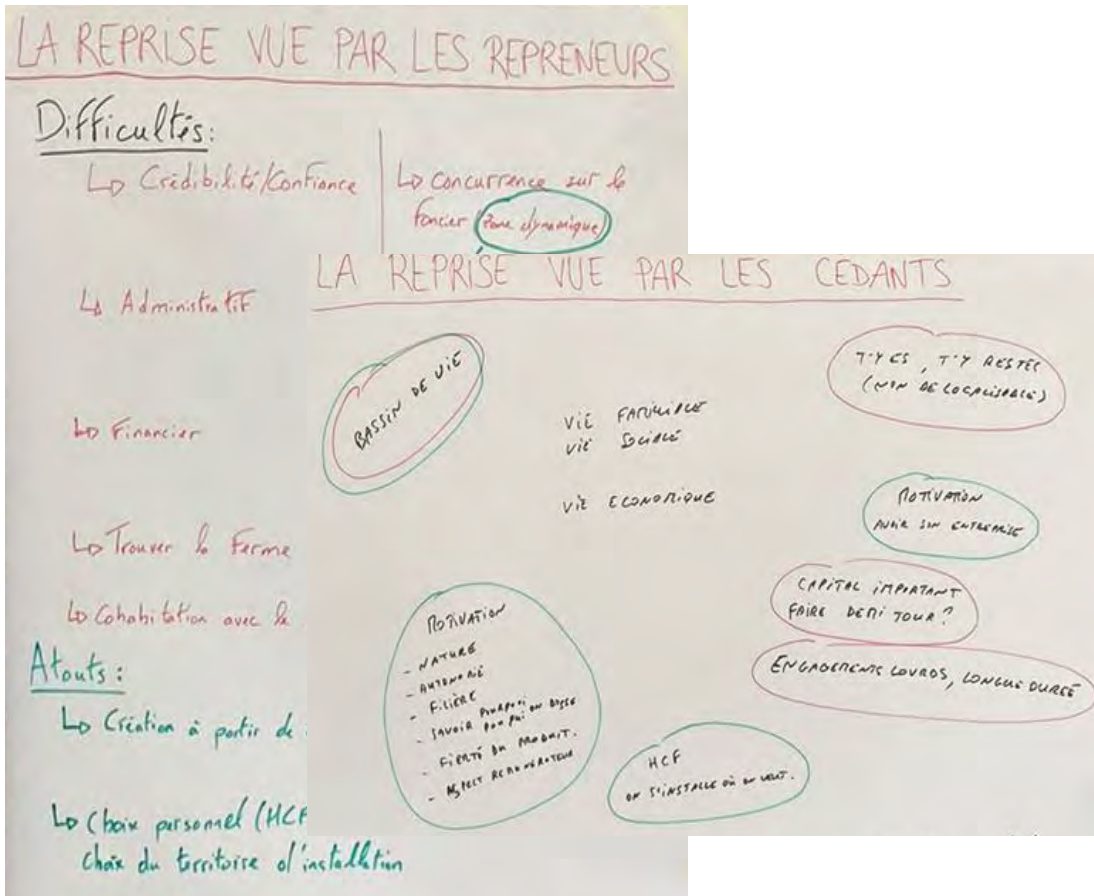 LA REPRISE VUE PAR LES REPRENEURS
Difficultés:
↳ Crédibilité/Confiance
↳ Concurrence sur le
foncier (zone dynamique)
↳ Administratif
↳ Financier
↳ Trouver la Ferme
↳ Cohabitation avec le
Atouts:
↳ Création à partir de
↳ Choix personnel (HCF
Choix du territoire d'installation
LA REPRISE VUE PAR LES CEDANTS
BASSIN DE VIE
T'Y ES, T'Y RESTES
(NON DELOCALISABLE)
VIE FAMILIALE
VIE SOCIALE
VIE ECONOMIQUE
MOTIVATION
AVOIR SON ENTREPRISE
CAPITAL IMPORTANT
FAIRE DEMI TOUR?
ENGAGEMENTS LOURDS, LONGUE DUREE
MOTIVATION
- NATURE
- AUTONOMIE
- FILIÈRE
- SAVOIR POURQUOI
POUR QUI ON BOSSE
- FIERTÉ DU PRODUIT.
- ASPECT REMUNERATEUR
HCF
ON S'INSTALLE OÙ ON VEUT.